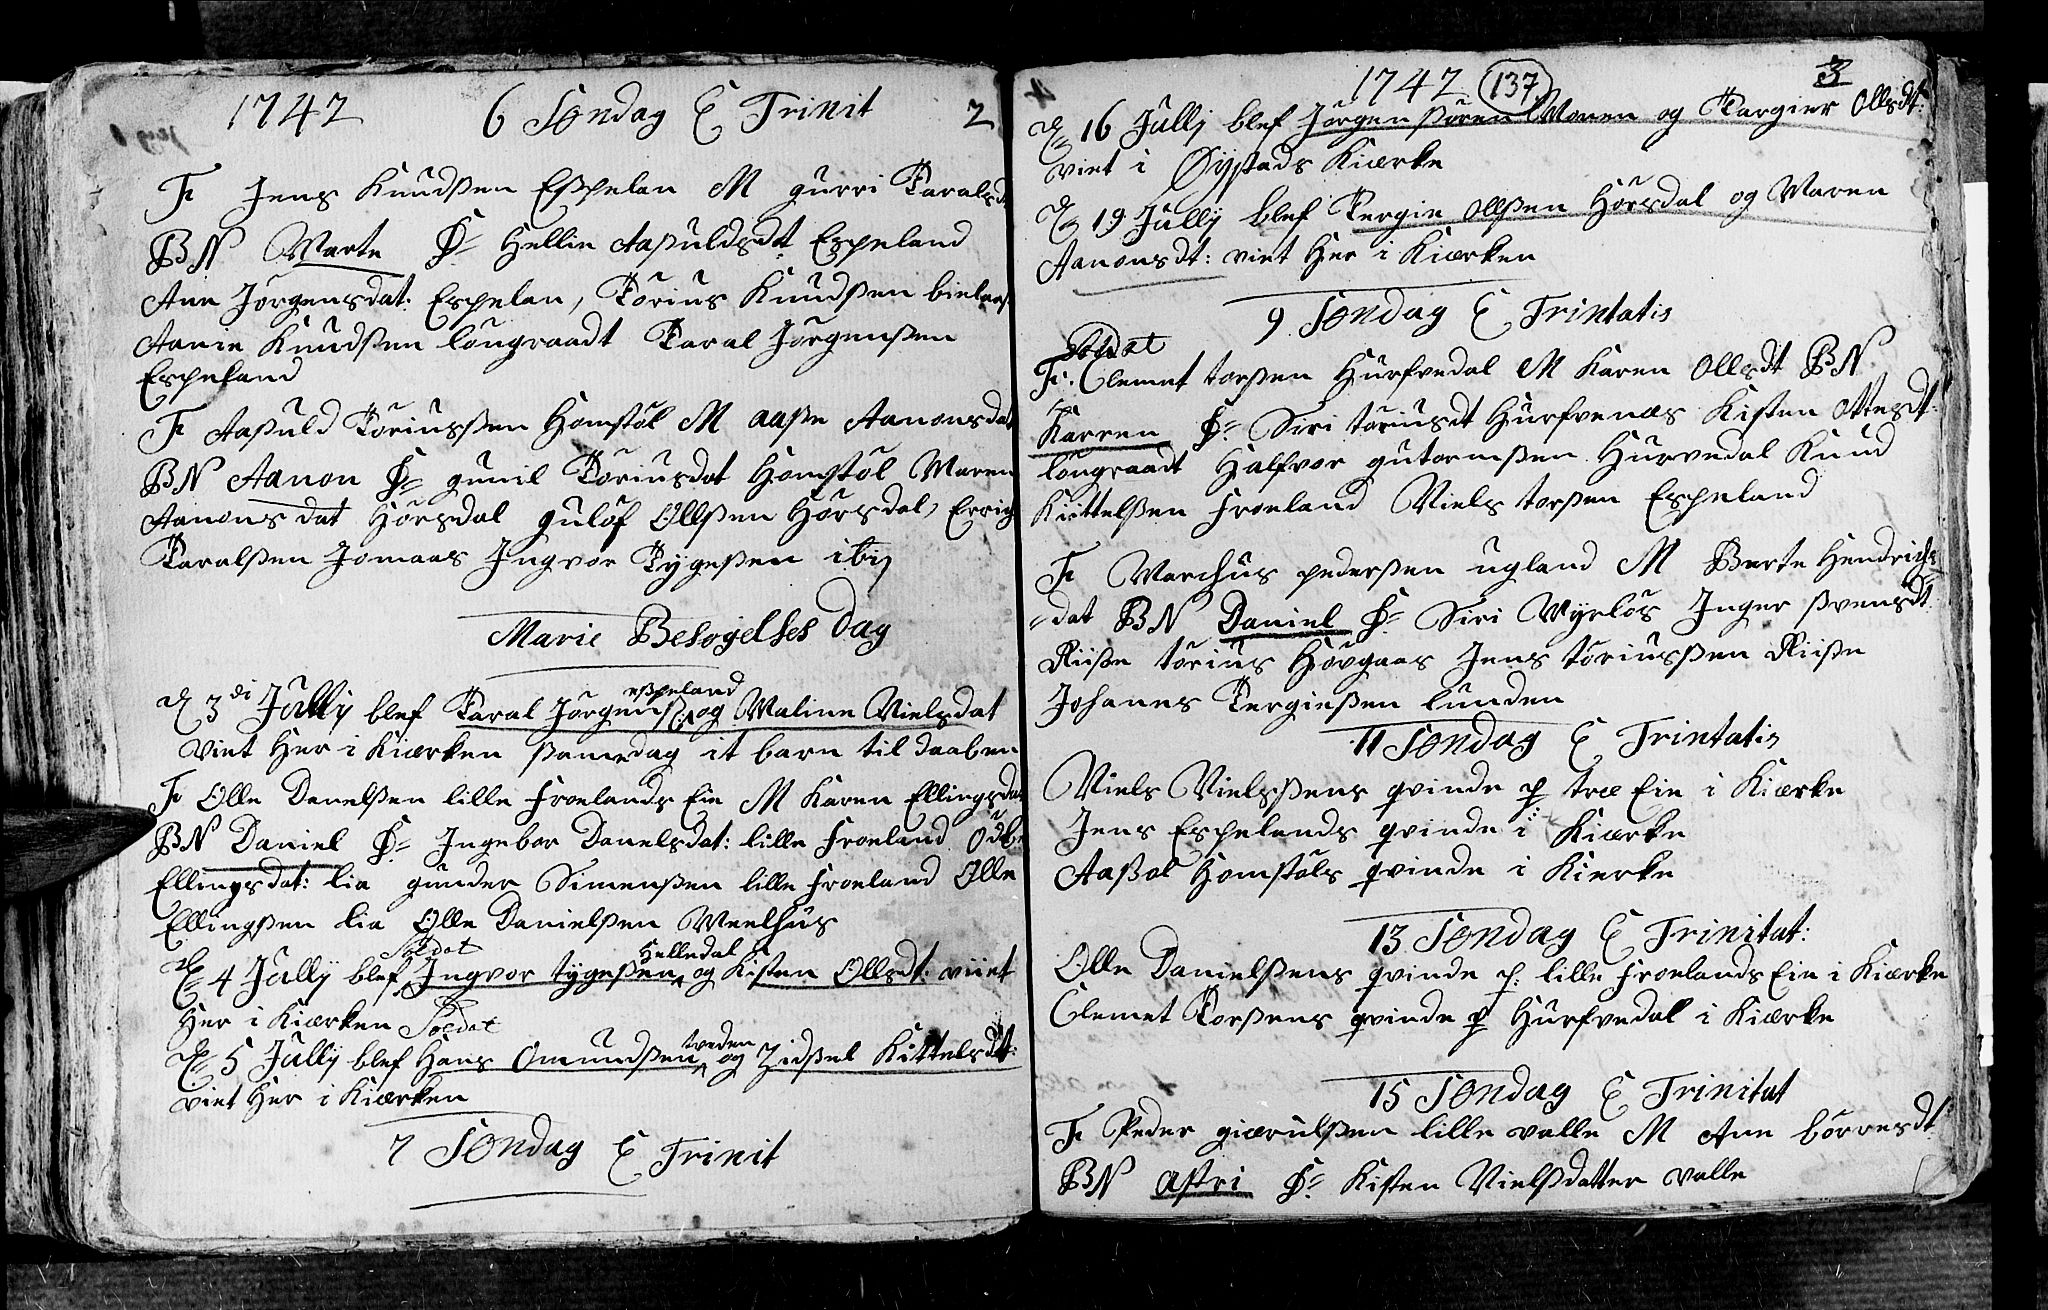 1742 6 Søndag E Trinit 2
F Jens Knudsen Espelan M gurri Taralsd
BN Marte F= Hellie Aasuldsdt Espeland
Ane Jørgensdat: Espelan, Torius Knudsen
Aanie Knudsen Lougraadt Taral Jørgensen
Espeland
F Aasuld Toriussen Homstøl M aase Aanonsdat
BN Aanon F= gunil Toriusdat Homstøl Maren
Aanonsdat Hørsdal gulof Ollsen Hørsdal, Errich
Taralsen Jomaas Ingvor Tygesen ibi
Marie Besøgelses Dag
d 3di Jully blef Taral Jørgens: espeland og Maline Nielsdat
viet Her i Kiærken samedag it barn til daaben
F Olle Danelsen lille Froelands Eie M Karen Ellingsdat
BN Daniel F= Ingebor Danelsdat: lille Froeland
Ellingsdat: lia gunder Simensen lille Froeland Olle
Ellingsen lia Olle Danielsen Meelhus
d= 4 Jully blef Soldat Ingvor tygesen Helledal og Kisten Ollsdt: viiet
Her i Kiærken
d= 5 Jully blef Soldat Hans Omundsen tveden og Zidsel Kittelsdt:
viet Her i Kiærken
7 Søndag E Trinit
1742 137 3
d= 16 Jully blef Jørgen Søren Monen og Targier Ollsdt:
viet i Øystads Kiærke
d= 19 Jully blef Tergie Ollsen Hørsdal og Maren
Aanonsdt: viet Her i Kiærken
9 Søndag E Trintatis
Soldat
F: Clemet torsen Hurfvedal M Karen Ollsdt BN
Karren F= Siri toriusdt Hurfvenæs Kisten Ottesdt:
lougraadt Halfvor gutormsen Hurvedal Knud
Kittelsen Froeland Niels torsen Espeland
F Marchus pedersen ugland M Berte Hendrichs
=dat BN Daniel F= Siri Myrløs Inger svensdt
Riise torius Hovgaas Jens toriussen Riise
Johanes Tergiesen lunden
11 Søndag E Trintatis
Niels Nielssens qvinde p træ Eie i Kiærke
Jens Espelands qvinde i Kiærke
Aasol Homstøls qvinde i Kierke
13 Søndag E Trinitat:
Olle Danielsens qvinde p: lille Froelands Eie i Kiærke
Clemet Torsens qvinde p Hurfvedal i Kiærke
15 Søndag E Trinitat
F Peder giærulsen lille valle M Ane børresdt
BN Astri F= Kisten Nielsdatter valle